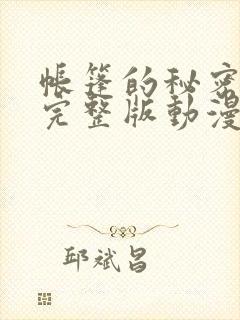 帳篷的秘密
完整版動漫
邱斌昌